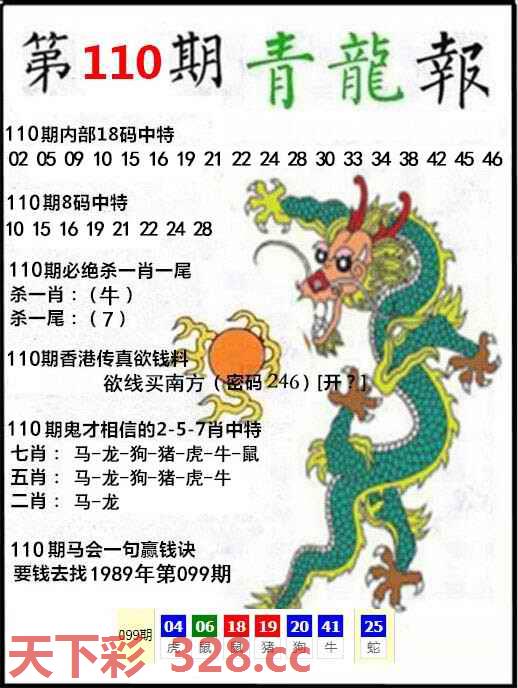 第110期青龍報
110期内部18码中特
02 05 09 10 15 16 19 21 22 24 28 30 33 34 38 42 45 46
110期8码中特
10 15 16 19 21 22 24 28
110期必绝杀一肖一尾
杀一肖：（牛）
杀一尾：（7）
110期香港传真欲钱料
欲线买南方（密码246）[开？]
110期鬼才相信的2-5-7肖中特
七肖： 马-龙-狗-猪-虎-牛-鼠
五肖： 马-龙-狗-猪-虎-牛
二肖： 马-龙
110期马会一句赢钱诀
要钱去找1989年第099期
099期 04 06 18 19 20 41 25
虎 鼠 鼠 猪 狗 牛 蛇
天下彩 328.cc